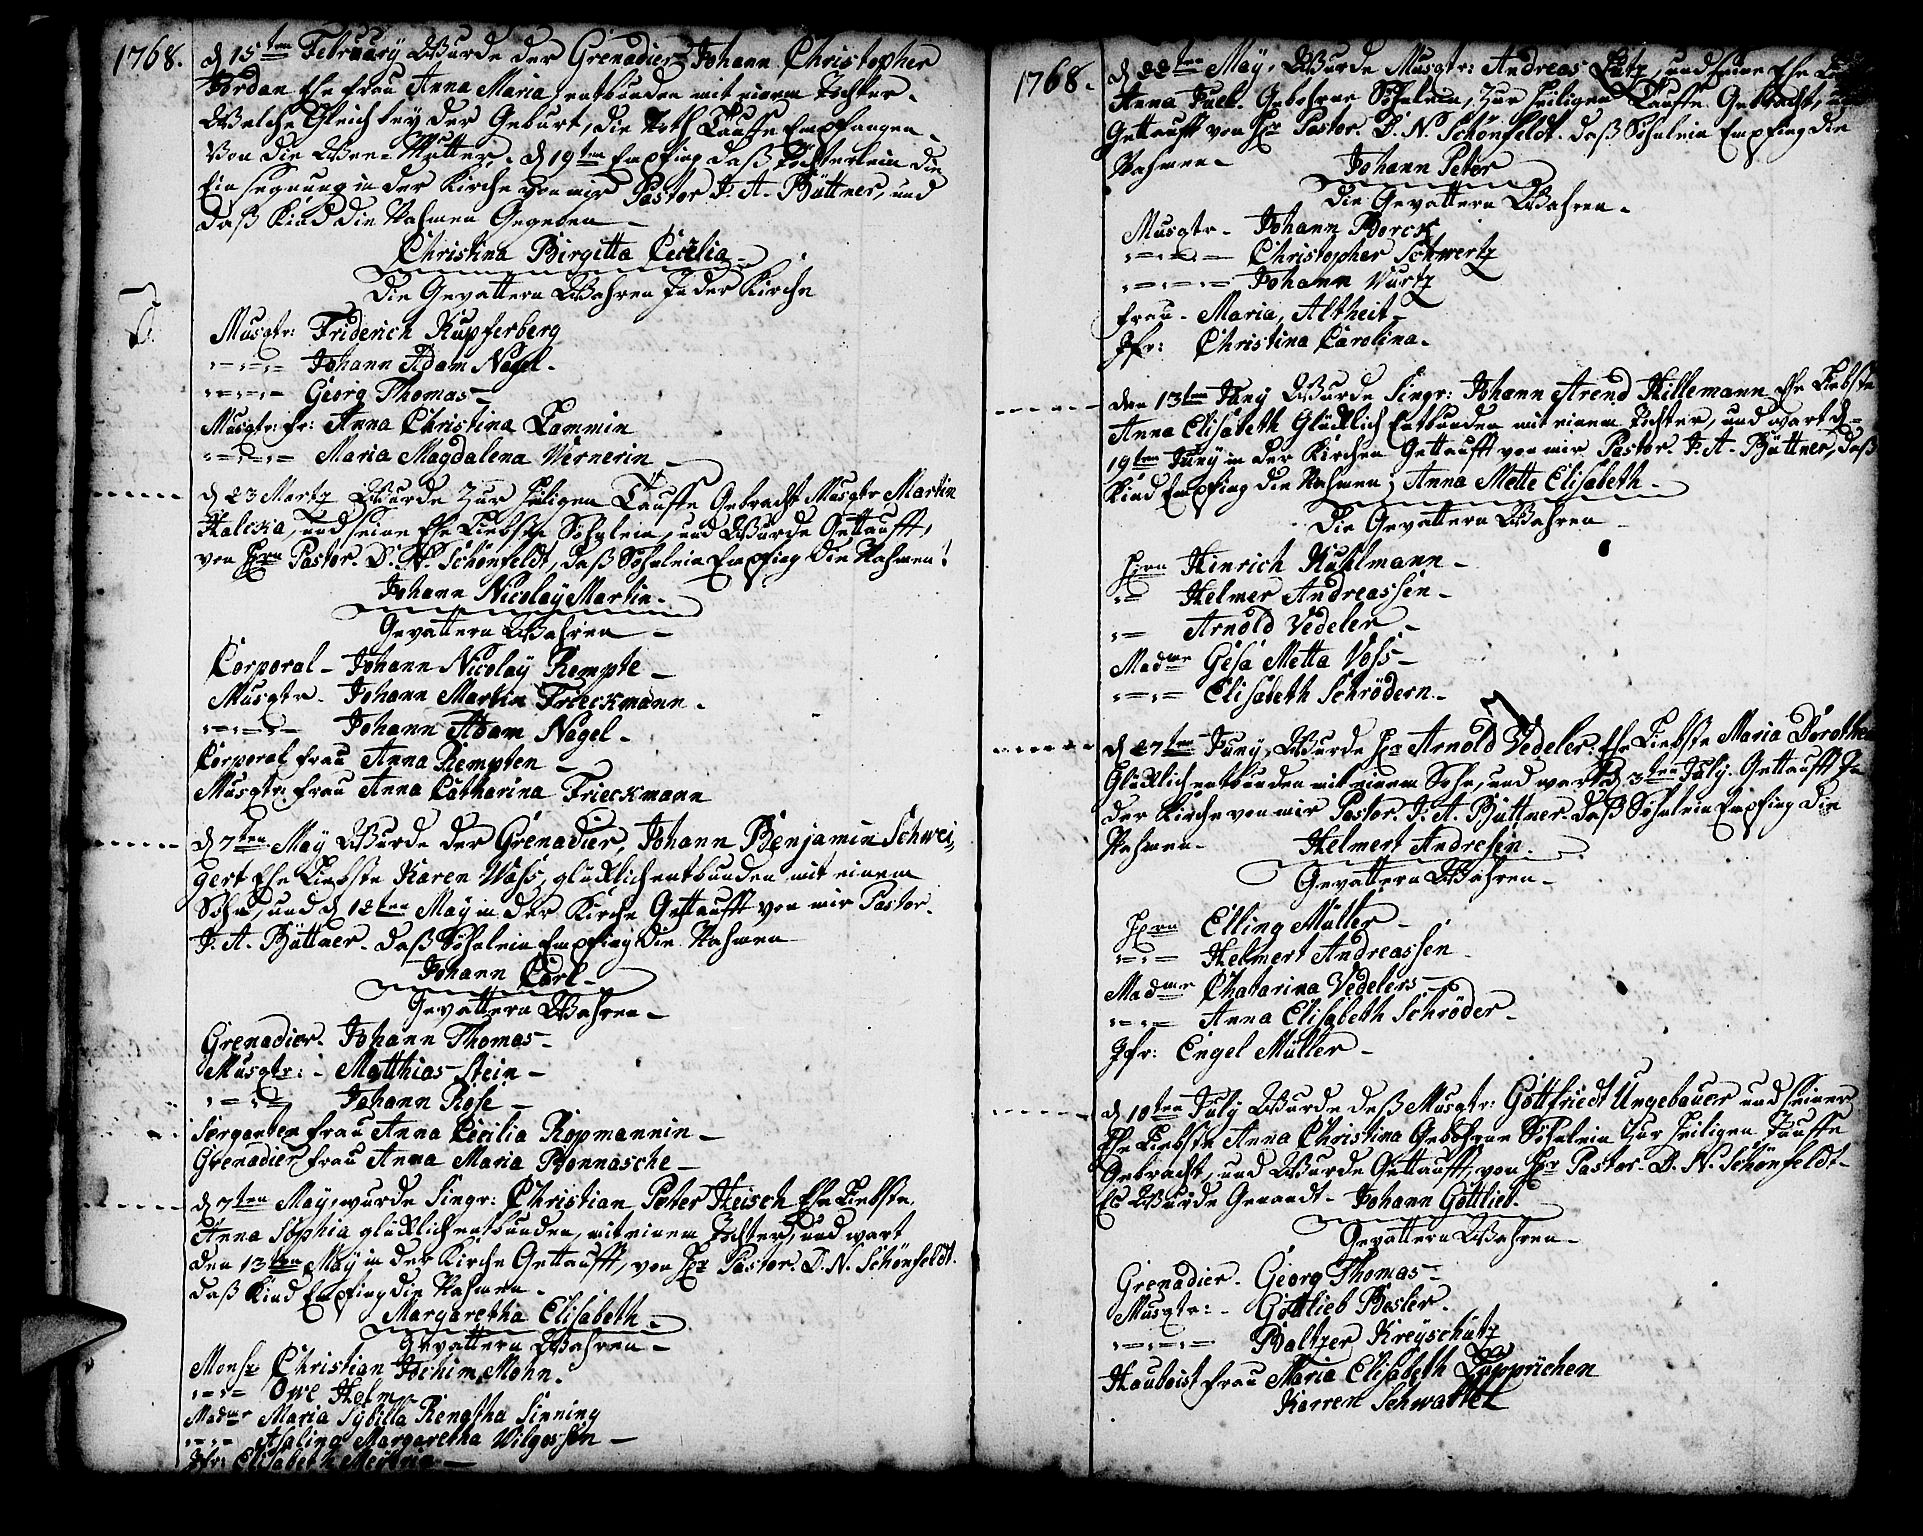 1768. d 15ten February Wurde der Grenadier Johann Christopher
Jordan Ehe Frau Anna Maria, entbunden mit einem Tochter.
Welche Gleich bey der Geburt, die Noth Tauffe Empfangen.
Von die Mutter. d 19ten Empfing daß Töchterlein die
Einsegnung in der Kirche von mir Pastor J. A. Büttner, und
daß Kind die Nahmen Gegeben
Christina Birgitta Cecilia
Die Gevattern Wahren In der Kirche
Musqtr: Friderich Kupferberg
Johann Adam Nagel.
Georg Thomas
Musqtr: fr: Anna Christina Lammin
Maria Magdalena Wernerin
d 23 Martz Wurde Zur Heiligen Tauffe Gebracht Musqtr Martin
Halcka, und seine Ehe Liebste Söhnlein, und Wurde Gettaufft,
von Hrn Pastor. D. N. Schönfeldt, daß Söhnlein Empfing die Nahmen!
Johann Nicolay Martin.
Gevattern Wahren
Corporal Johann Nicolaÿ Rempte
Musqtr. Johann Martin Frieckmann.
Johann Adam Nagel.
Corporal frau Anna Rempten
Musqtr. frau Anna Catharina Frieckmann
d 7ten May Wurde der Grenadier, Johann Benjamin Schwei,
gert Ehe Liebste Karen Wass, glücklich entbunden mit einem
Sohn, und d 12ten May in der Kirche Gettaufft von mir Pastor.
J. A. Büttner. daß Söhnlein Empfing die Nahmen
Johann Carl.
Gevattern Wahren
Grenadier. Johann Thomas
Musqtr: Matthias Stein
Johann Rose
Sergenten frau Anna Cecilia Ropmannin
Grenadier frau Anna Maria Bonnasche
d 7ten May, wurde Singr: Christian Peter Heisch Ehe Liebste
Anna Sophia glücklich entbunden, mit einem Tochter, und wart
den 13ten May in der Kirche Gettaufft, von Hr Pastor. D. N. Schönfeldt.
daß Kind Empfing die Nahmen.
Margaretha Elisabeth
Gevattern Wahren
Monsr Christian Jochim Mohn.
Owe Helm
Madme Maria Sybilla Renatha Sinning
Asaling Margaretha Wilgossen
Jfr: Elisabeth
1768. d 22ten May, Wurde Musqtr: Andreas Lutz, und seine Ehe
Anna Gebohrne Söhnlein, Zur Heiligen Tauffe Gebracht, und
Gettaufft von Hr Pastor. D. N. Schönfeldt. daß Söhnlein Empfing die
Nahmen
Johann Peter
Die Gevattern Wahren.
Musqtr. Johann Borck
Christopher Schwertz
Johann Wurtz
frau. Maria, Altheit
Jfr: Christina Carolina.
den 13ten Juny Wurde Singr: Johann Arend Hillemann Ehe Liebste
Anna Elisabeth Glücklich Entbunden mit einem Tochter, und wart d
19ten Juny in der Kirchen Gettaufft von mir Pastor. J. A. Büttner, daß
Kind Empfing die Nahmen; Anna Mette Elisabeth
Die Gevattern Wahren
Hrn Hinrich Kuhlmann
Helmer Andreassen
Arnold Vedeler
Madme Gesa Metta Voss
Elisabeth Schrödern
d 27ten Juny, Wurde Hr Arnold Vedeler. Ehe Liebste Maria Dorothea
Glücklich entbunden mit einem Sohn, und wart d 3ten July. Gettaufft In
der Kirche von mir Pastor. J. A. Büttner. daß Söhnlein Empfing die
Nahmen. Helmert Andresen.
Gevattern Wahren
Hrn Elling Müller
Helmert Andreassen
Madme Chatarina Vedelers
Anna Elisabeth Schröder
Jfr: Engel Müller
d 10ten July Wurde deß Musqtr: Gottfriedt Ungebauer und seiner
Ehe Liebste Anna Christina Gebohrne Söhnlein Zur Heiligen Tauffe
Gebracht, und Wurde Gettaufft, von Hr Pastor. D. N. Schönfeldt
Es Wurde Genandt. Johann Gottlieb.
Gevattern Wahren
Grenadier. Georg Thomas
Musqtr: Gottlieb Besler.
Baltzer Kreyschutz
Hauboist frau Maria Elisabeth
Karren Schwartz